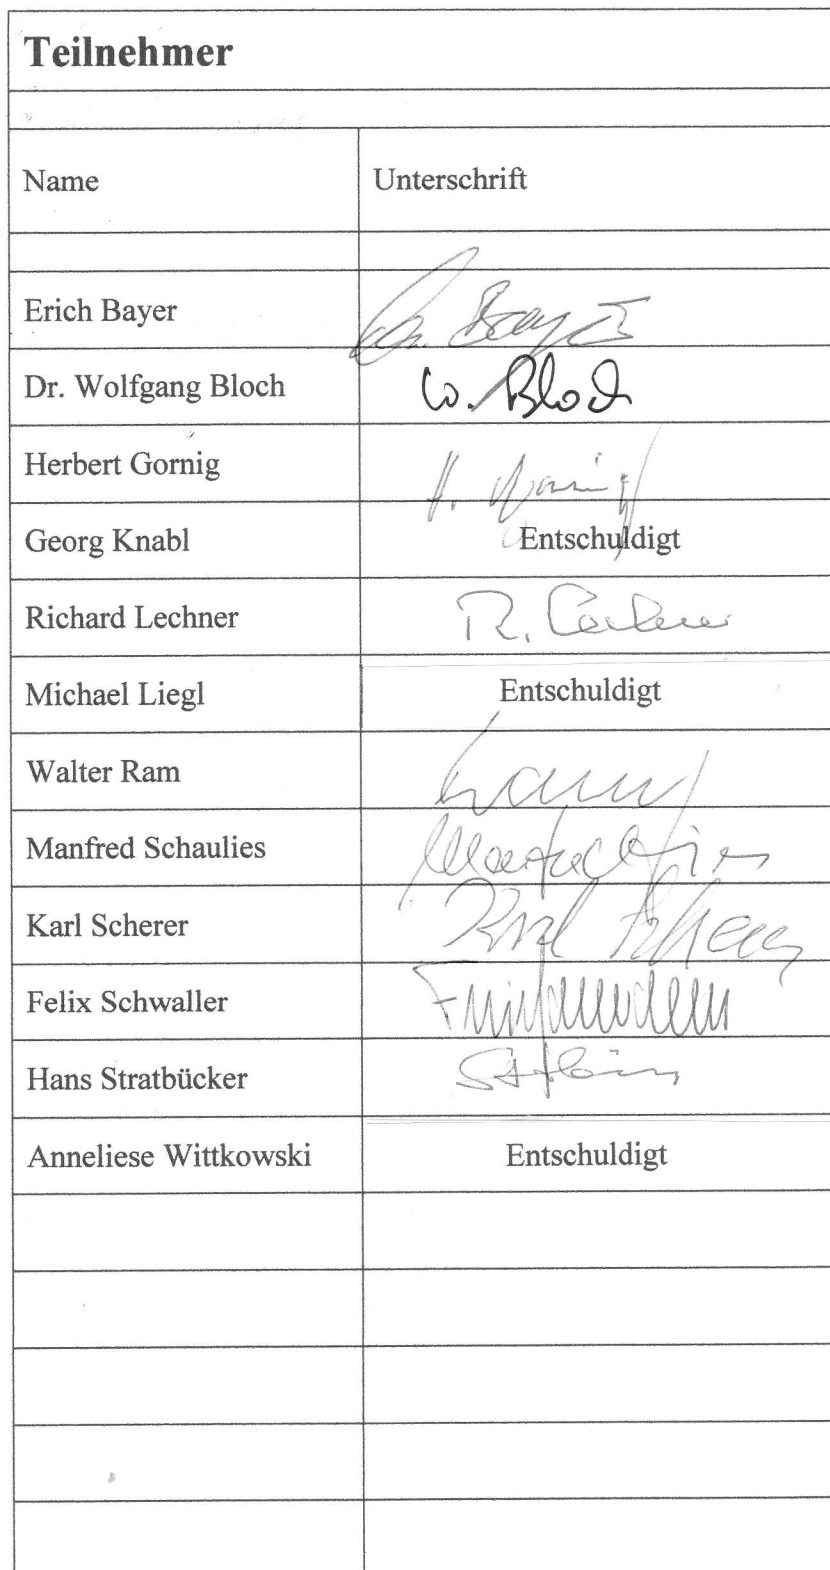 Teilnehmer
Name Unterschrift
Erich Bayer
Dr. Wolfgang Bloch W. Bloch
Herbert Gornig
Georg Knabl Entschuldigt
Richard Lechner R. Lechner
Michael Liegl Entschuldigt
Walter Ram
Manfred Schaulies
Karl Scherer Karl Scherer
Felix Schwaller
Hans Stratbücker
Anneliese Wittkowski Entschuldigt